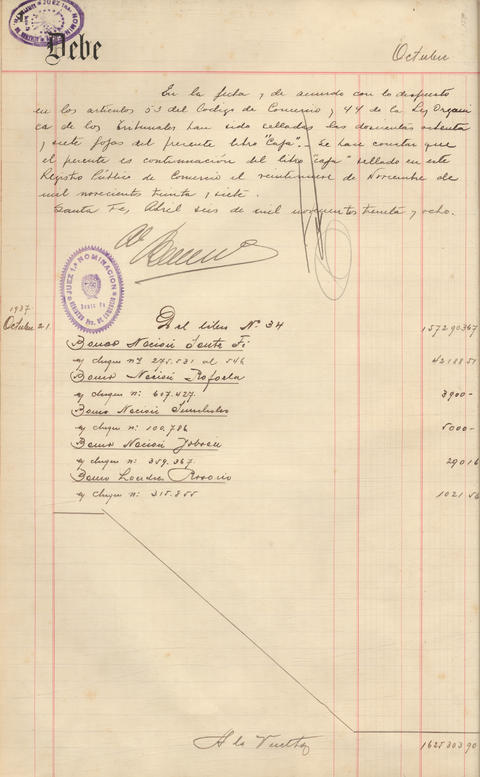 JUEZ 1ª NOMINACION
Debe
Octubre
En la fecha y de acuerdo con lo dispuesto
en los articulos 53 del Codigo de Comercio, y 44 de la Ley Orgáni
ca de los Tribunales han sido selladas las doscientas ochenta
y siete fojas del presente libro "Caja".- Se hace constar que
el presente es continuación del libro "Caja" sellado en este
Registro Público de Comercio el veintinueve de Noviembre de
mil novecientos treinta y siete.
Santa Fe, Abril seis de mil novecientos treinta y ocho.
JUEZ 1ª NOMINACION
Santa Fe
1937
Octubre 21. Del libro N. 34 157290367
Banco Nacion Santa Fé
s/ cheques nº 275.531 al 546 4218851
Banco Nación Rafaela
s/ cheque n: 607.427. 3900-
Banco Nación
s/ cheque n: 100.786 5000-
Banco Nación
s/ cheque n: 359.367 29016
Banco Londres Rosario
s/ cheque n: 315.855 102156
A la Vuelta 162530390